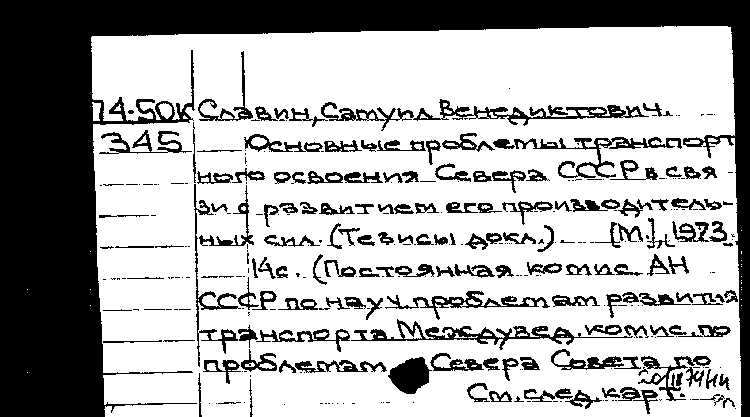 74-50К Славин, Самуил Венедиктович.
345 Основные проблемы транспорт
ного освоения Севера СССР в свя
зи с развитием его производитель-
ных сил. (Тезисы докл.). [М.], 1973.
14с. (Постоянная комис. АН
СССР по науч. проблемам развития
транспорта. Междувед. комис. по
проблемам Севера Совета по
См. след. карт.